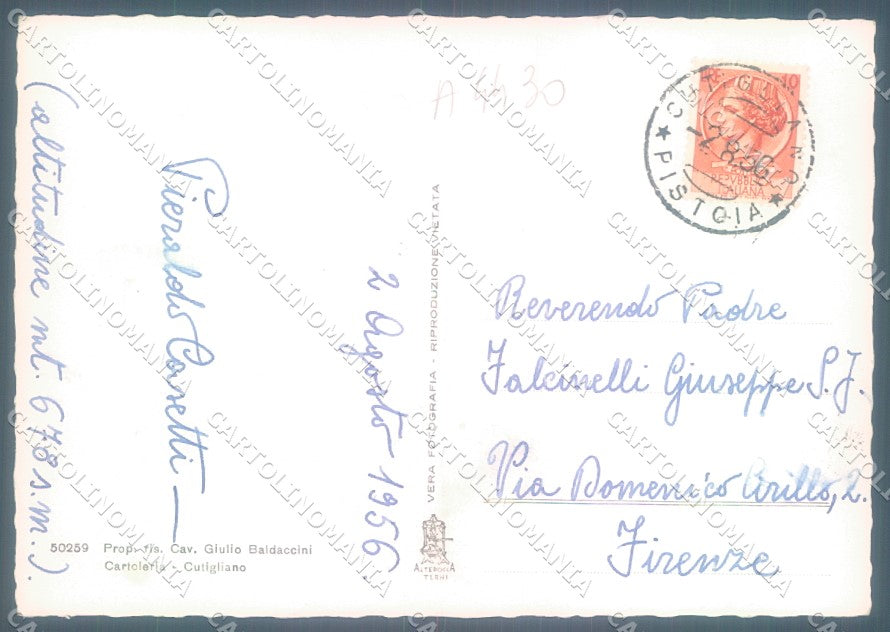 (altitudine mt. 678 s.m.).
Pieraldo Casetti
2 Agosto 1956.
A 4430
50259 Propr. ris. Cav. Giulio Baldaccini
Cartoleria - Cutigliano
VERA FOTOGRAFIA - RIPRODUZIONE VIETATA
ALTEROCCA
TERNI
CUTIGLIANO
2.8.56
★ PISTOIA ★
10
REPVBBLICA
ITALIANA
Reverendo Padre
Falcinelli Giuseppe S.J.
Via Domenico Cirillo, 2.
Firenze
CARTOLINOMANIA